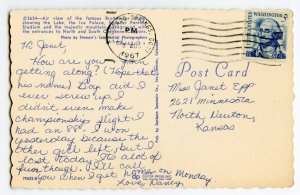 #2634—Air view of the famous Broadmoor
showing the Lake, the Ice Palace,
Stadium and the majestic mountain
the entrances to North and South
Photo by Stewarts Commercial Photographers
PM
1967
WASHINGTON 5¢
Hi Janet,
How are you
getting along? (Hope that's
his name) Boy did I
ever screw up. I
didn't even make
championship flight. I
had an 88. I won
yesterday because the
other girl left, but I
lost today. It's alot of
fun though. I'll call
you when I get home on Monday.
Love, Nancy
Post Card
Miss Janet Epp
2621 Minnesota
North Newton,
Kansas